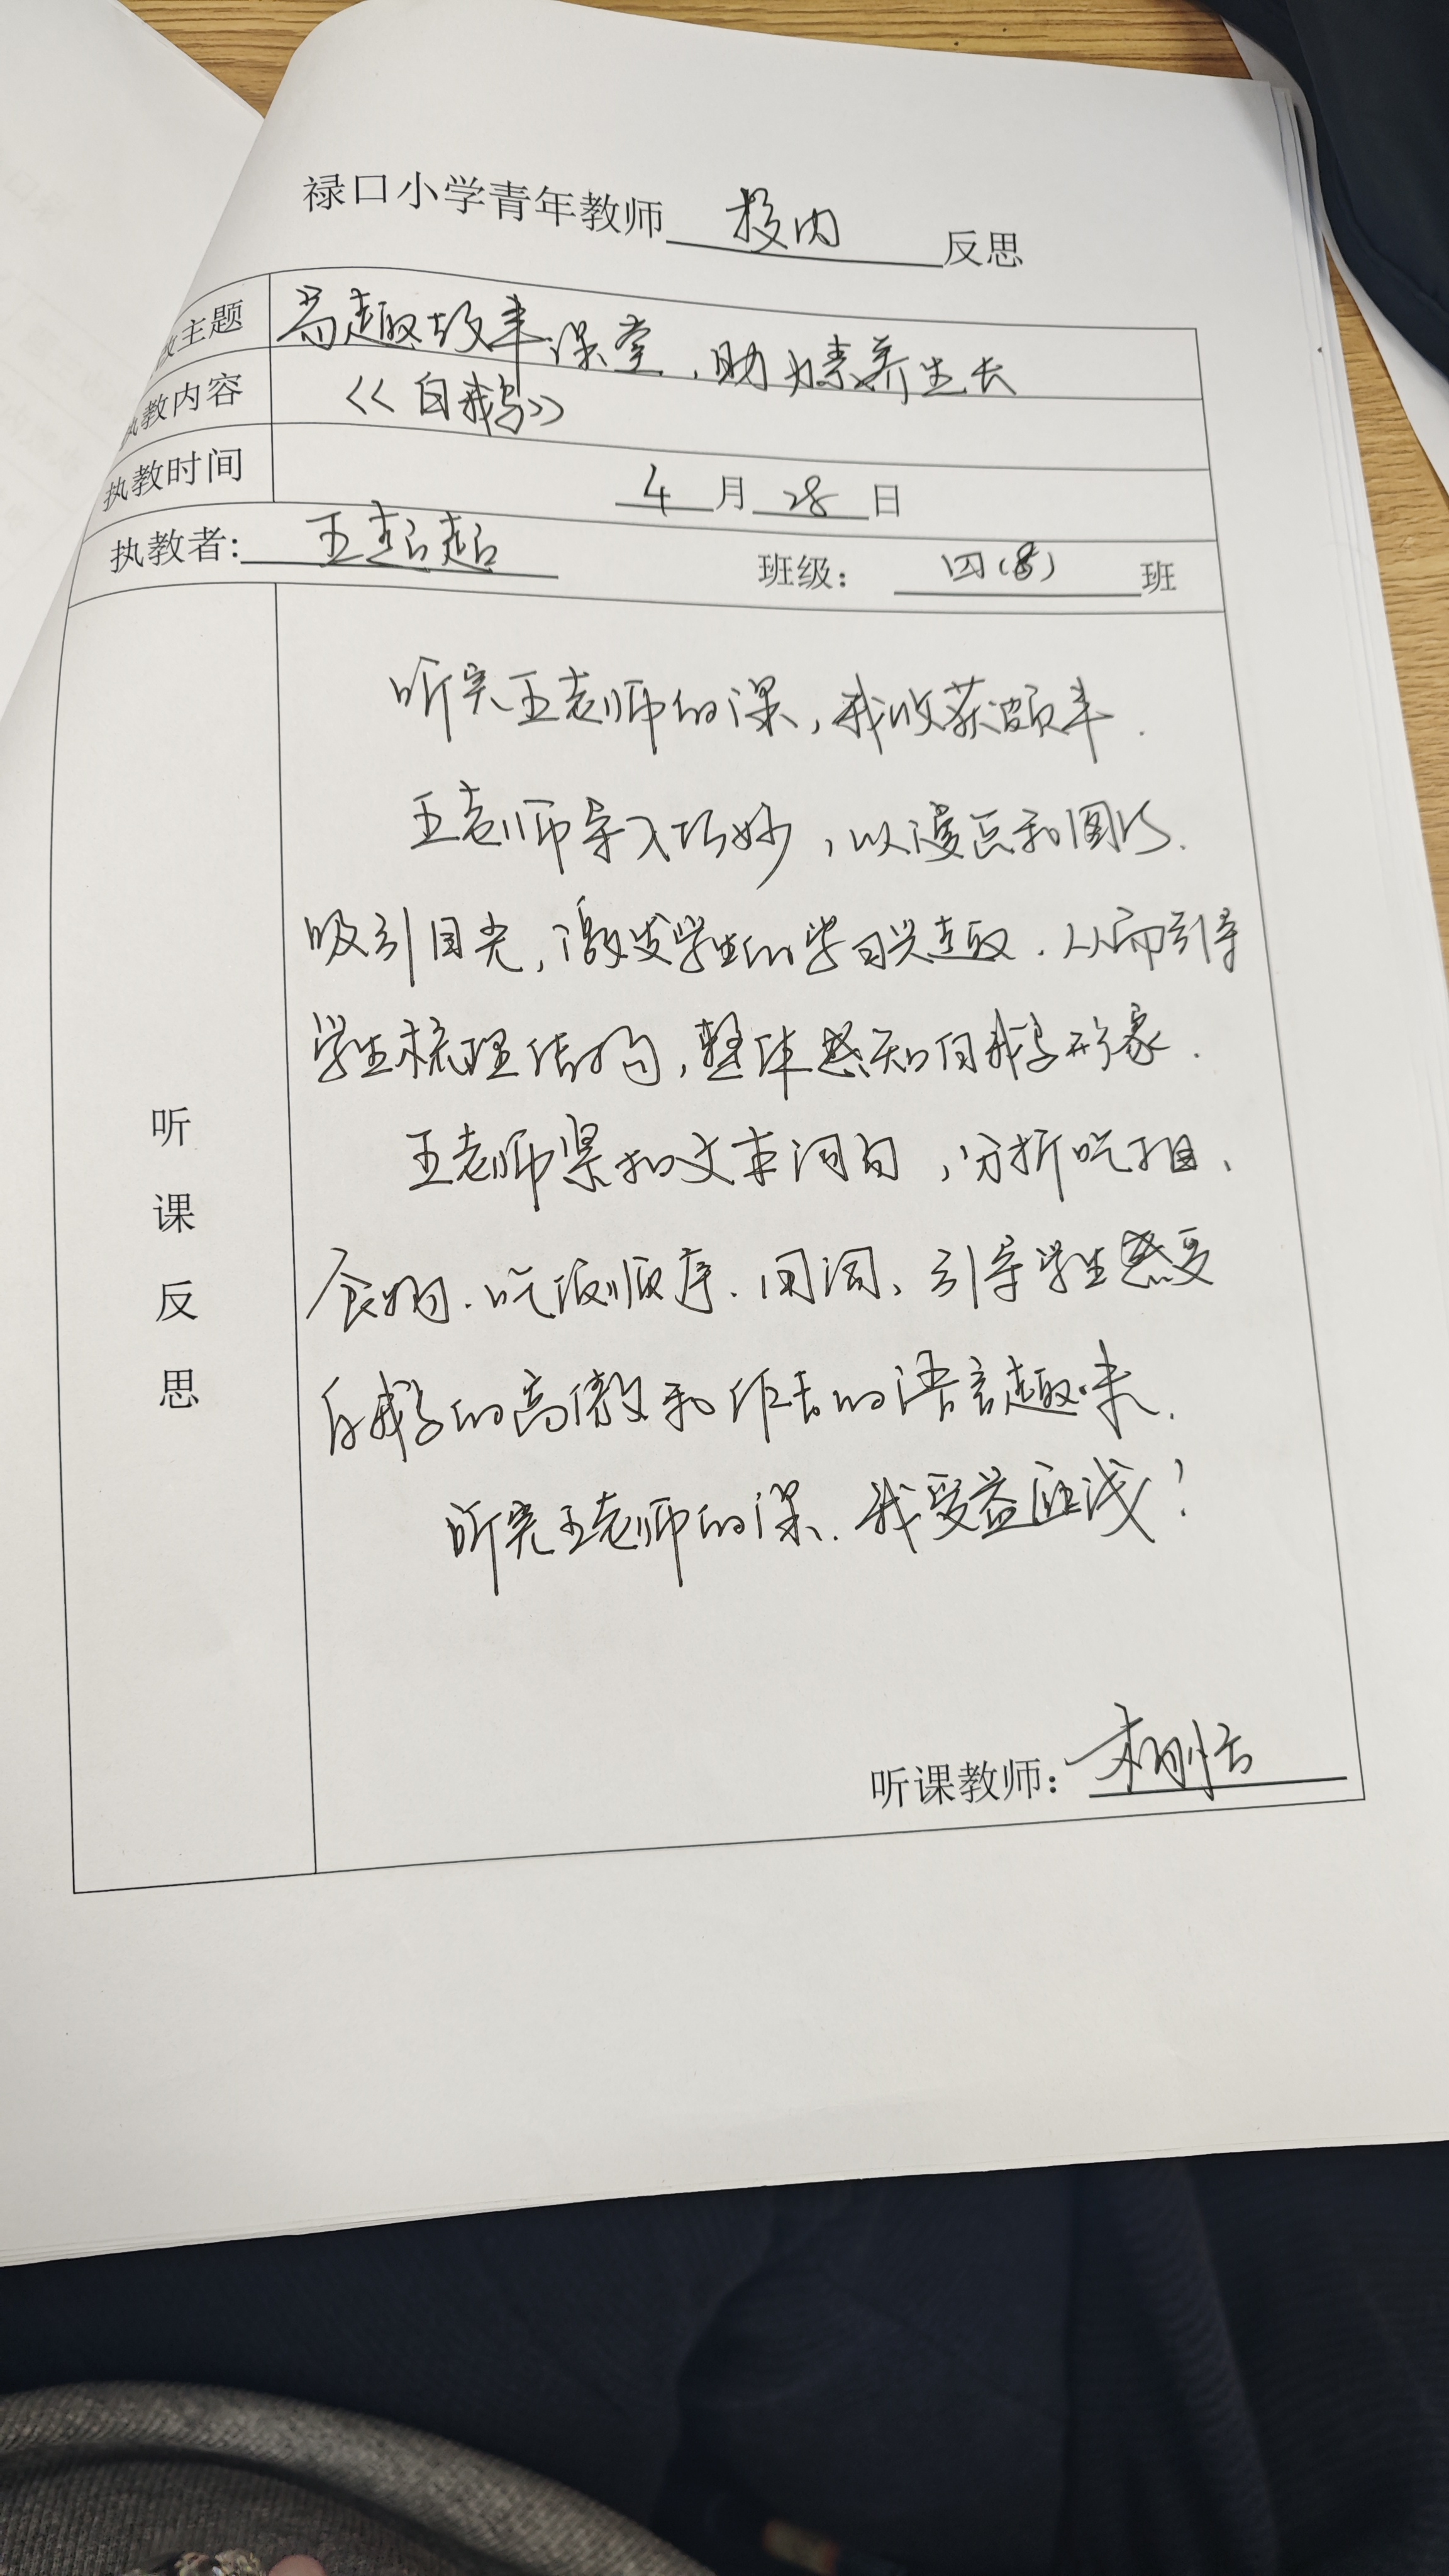 禄口小学青年教师 校内 反思
主题 富趣效丰课堂，助力素养生长
执教内容 《白鹅》
执教时间 4月28日
执教者: 王超超 班级: 四(8) 班
听课反思
听完王老师的课，我收获颇丰.
王老师导入巧妙，以漫画和图片.
吸引目光，激发学生的学习兴趣.从而引导
学生梳理结构，整体感知白鹅形象.
王老师紧扣文本词句，分析吃相、
食物.吃饭顺序.用词、引导学生感受
白鹅的高傲和作者的语言趣味.
听完王老师的课.我受益匪浅!
听课教师: